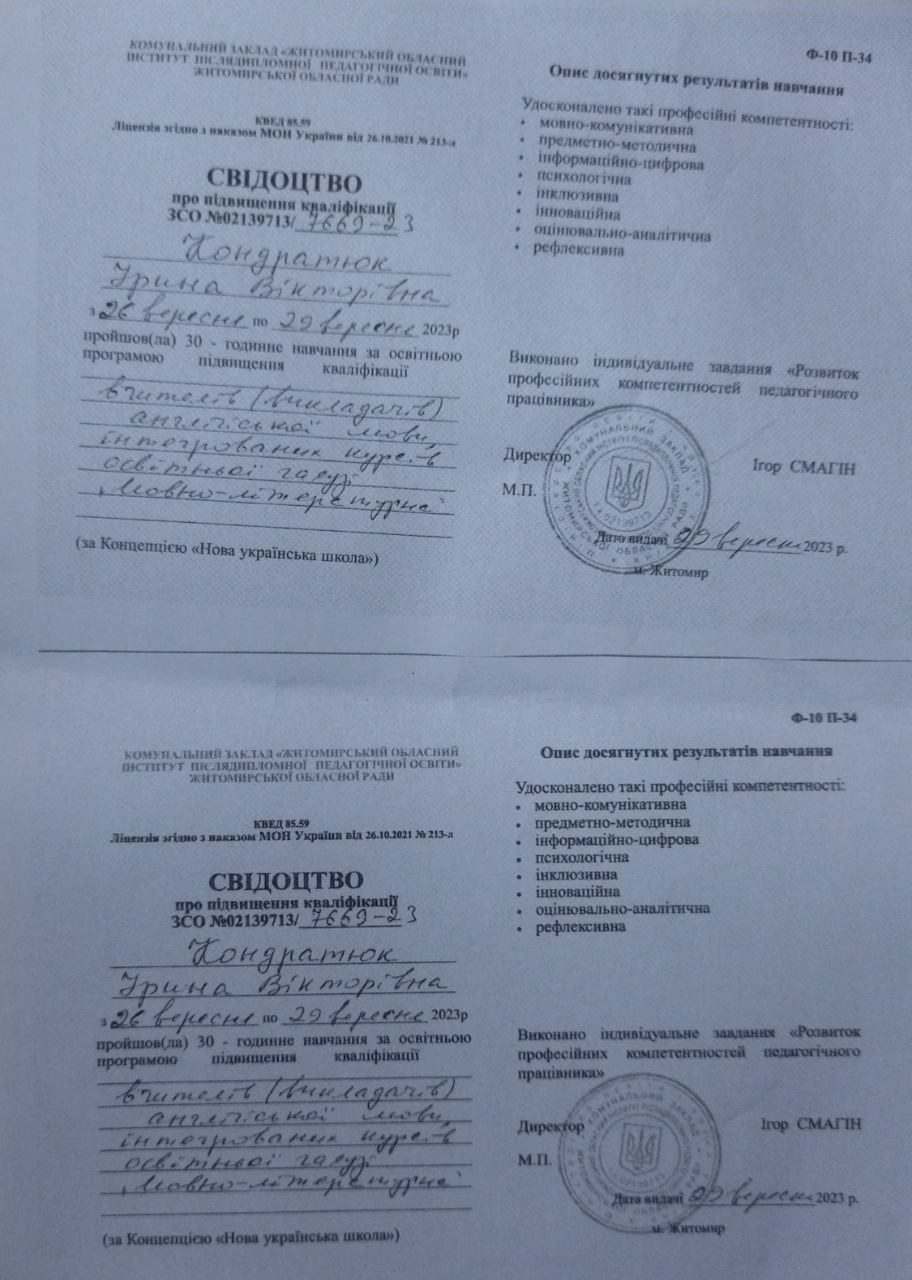 КОМУНАЛЬНИЙ ЗАКЛАД «ЖИТОМИРСЬКИЙ ОБЛАСНИЙ
ІНСТИТУТ ПІСЛЯДИПЛОМНОЇ ПЕДАГОГІЧНОЇ ОСВІТИ»
ЖИТОМИРСЬКОЇ ОБЛАСНОЇ РАДИ
КВЕД 85.59
Ліцензія згідно з наказом МОН України від 26.10.2021 № 213-л
СВІДОЦТВО
про підвищення кваліфікації
ЗСО №02139713/ 7669-23
Кондратюк
Ірина Вікторівна
з 26 вересня по 29 вересня 2023р
пройшов(ла) 30 - годинне навчання за освітньою
програмою підвищення кваліфікації
вчителів (викладачів)
англійської мови,
інтегрованих курсів
освітньої галузі
"Мовно-літературна"
(за Концепцією «Нова українська школа»)
Ф-10 П-34
Опис досягнутих результатів навчання
Удосконалено такі професійні компетентності:
• мовно-комунікативна
• предметно-методична
• інформаційно-цифрова
• психологічна
• інклюзивна
• інноваційна
• оцінювально-аналітична
• рефлексивна
Виконано індивідуальне завдання «Розвиток
професійних компетентностей педагогічного
працівника»
Директор Ігор СМАГІН
М.П.
Дата видачі 29 вересня 2023 р.
м. Житомир
КОМУНАЛЬНИЙ ЗАКЛАД
02139713
КОМУНАЛЬНИЙ ЗАКЛАД «ЖИТОМИРСЬКИЙ ОБЛАСНИЙ
ІНСТИТУТ ПІСЛЯДИПЛОМНОЇ ПЕДАГОГІЧНОЇ ОСВІТИ»
ЖИТОМИРСЬКОЇ ОБЛАСНОЇ РАДИ
КВЕД 85.59
Ліцензія згідно з наказом МОН України від 26.10.2021 № 213-л
СВІДОЦТВО
про підвищення кваліфікації
ЗСО №02139713/ 7669-23
Кондратюк
Ірина Вікторівна
з 26 вересня по 29 вересня 2023р
пройшов(ла) 30 - годинне навчання за освітньою
програмою підвищення кваліфікації
вчителів (викладачів)
англійської мови,
інтегрованих курсів
освітньої галузі
"Мовно-літературна"
(за Концепцією «Нова українська школа»)
Ф-10 П-34
Опис досягнутих результатів навчання
Удосконалено такі професійні компетентності:
• мовно-комунікативна
• предметно-методична
• інформаційно-цифрова
• психологічна
• інклюзивна
• інноваційна
• оцінювально-аналітична
• рефлексивна
Виконано індивідуальне завдання «Розвиток
професійних компетентностей педагогічного
працівника»
Директор Ігор СМАГІН
М.П.
Дата видачі 29 вересня 2023 р.
м. Житомир
КОМУНАЛЬНИЙ ЗАКЛАД
02139713